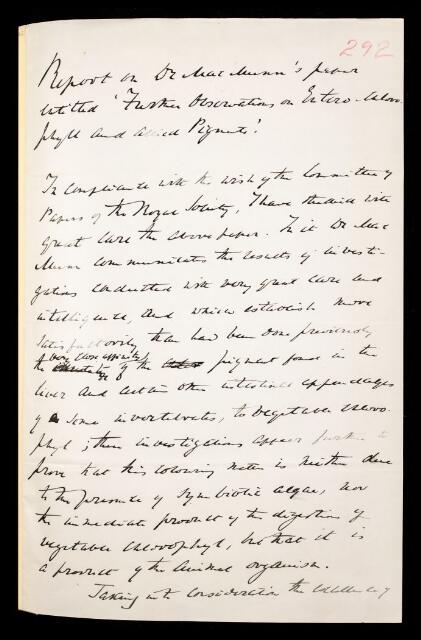 292
Report on Dr Mac Munn's paper
entitled 'Further Observations on Entero-chloro-
phyll and allied Pigments'.
In compliance with the wish of the Committee of
Papers of the Royal Society, I have studied with
great care the above paper. In it Dr Mac
Munn communicates the results of investi-
gations conducted with very great care and
intelligence, and which establish more
satisfactorily than has been done previously
the very close affinity of the pigment found in the
liver and certain other intestinal appendages
of some invertebrates, to vegetable chloro-
phyl; these investigations appear further to
prove that this colouring matter is neither due
to the presence of symbiotic algae, nor
the immediate product of the digestion of
vegetable chlorophyl, but that it is
a product of the animal organism.
Taking into consideration the